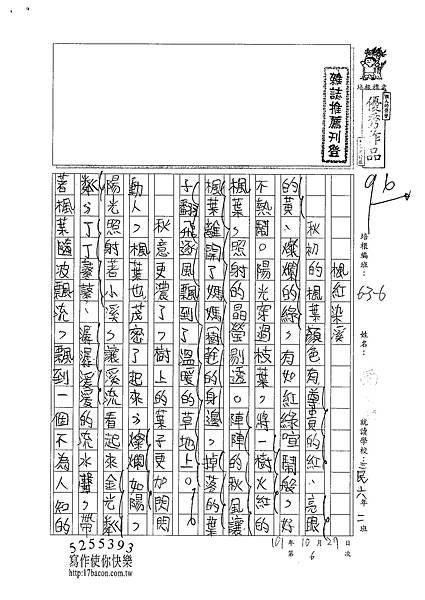 雜誌推薦刊登
培根標章
優秀作品
96
培根編班：63-6
姓名：
就讀學校：三民六年二班
101年10月29日
第6次
楓紅染溪
秋初的楓葉顏色有尊貴的紅、亮眼
的黃、燦爛的綠，有如紅綠喧鬧般，好
不熱鬧。陽光穿過枝葉，將一樹火紅的
楓葉，照射的晶瑩剔透。陣陣的秋風讓
楓葉離開了媽媽樹莊的身邊，掉落的葉
子翻飛逐風飄到了溫暖的草地上。
秋意更濃了，樹上的葉子更加閃閃
動人，楓葉也茂密了起來，燦爛如陽，
陽光照射著小溪，讓溪流看起來金光粼
粼，丁丁寥寥、潺潺湲湲的流水聲，帶
著楓葉隨波飄流，飄到一個不為人知的
5255393
寫作使你快樂
http://17bacon.com.tw